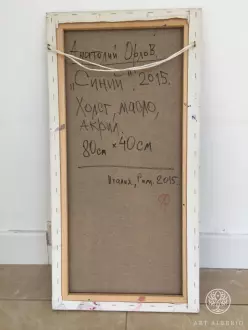 Анатолий Орлов
„Синий". 2015.
Холст, масло,
акрил.
80см × 40см
Италия, Рим. 2015.
ART ALBERIO